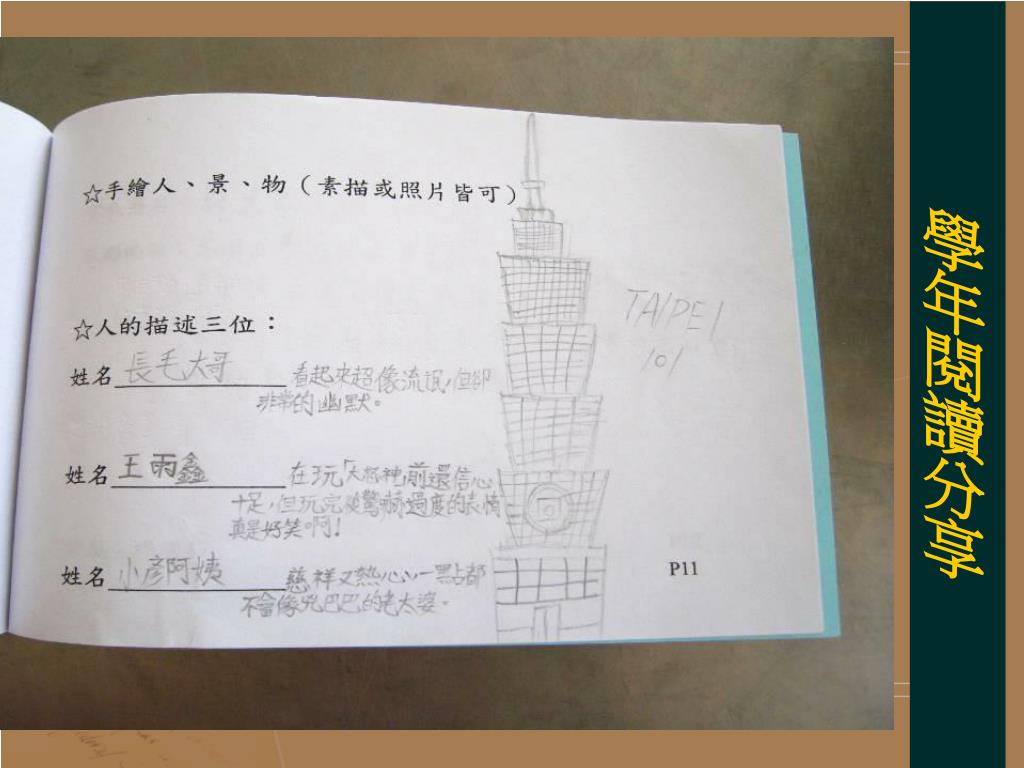 ☆手繪人、景、物（素描或照片皆可）
TAIPEI
101
☆人的描述三位：
姓名 長毛大哥 看起來超像流氓，但卻
非常的幽默。
姓名 王雨鑫 在玩「大怒神」前還信心
十足，但玩完後驚嚇過度的表情
真是好笑啊！
姓名 小彥阿姨 慈祥又熱心，一點都
不會像兇巴巴的老太婆。
P11
學年閱讀分享